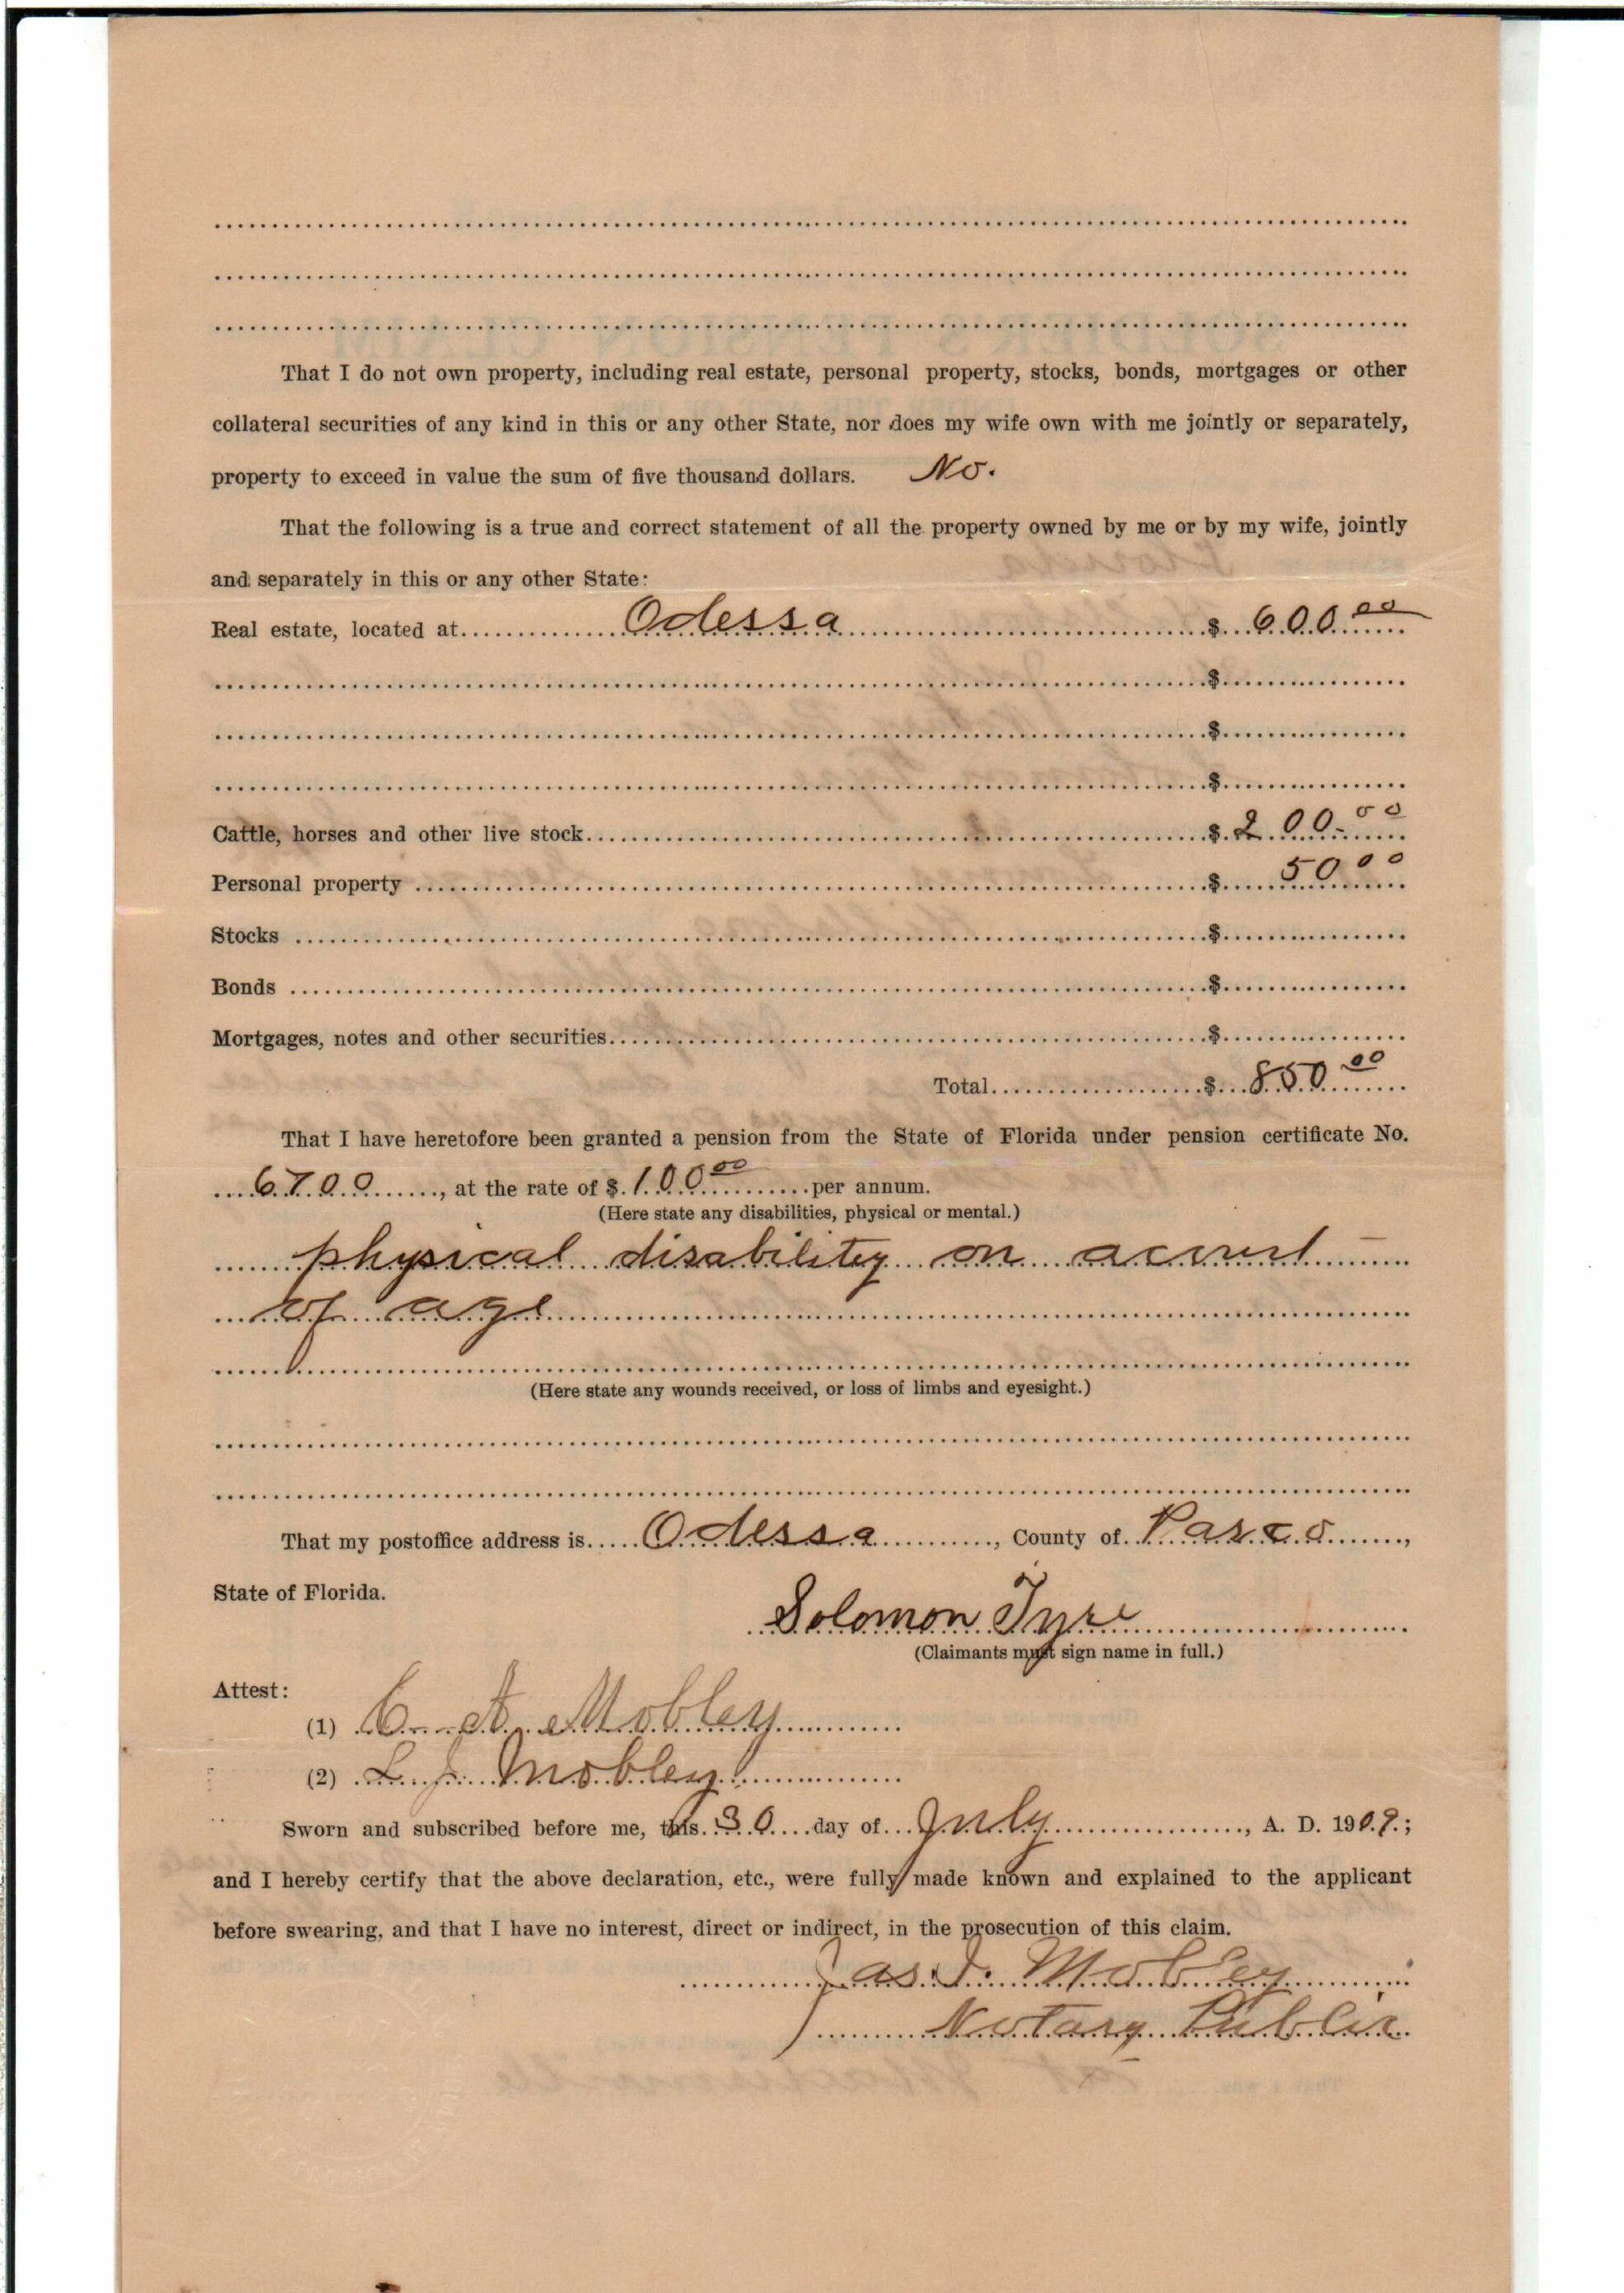 That I do not own property, including real estate, personal property, stocks, bonds, mortgages or other
collateral securities of any kind in this or any other State, nor does my wife own with me jointly or separately,
property to exceed in value the sum of five thousand dollars. No.
That the following is a true and correct statement of all the property owned by me or by my wife, jointly
and separately in this or any other State:
Real estate, located at Odessa $ 600.00
$
$
$
Cattle, horses and other live stock $ 200-00
Personal property $ 50 00
Stocks $
Bonds $
Mortgages, notes and other securities $
Total $ 850.00
That I have heretofore been granted a pension from the State of Florida under pension certificate No.
6700, at the rate of $ 100.00 per annum.
(Here state any disabilities, physical or mental.)
physical disability on
of age
(Here state any wounds received, or loss of limbs and eyesight.)
That my postoffice address is Odessa, County of Pasco,
State of Florida.
Solomon Tyre
(Claimants must sign name in full.)
Attest:
(1) C. A. Mobley
(2) L. J. Mobley
Sworn and subscribed before me, this 30 day of July, A. D. 1909.;
and I hereby certify that the above declaration, etc., were fully made known and explained to the applicant
before swearing, and that I have no interest, direct or indirect, in the prosecution of this claim.
Jas. I. Mobley
Notary Public